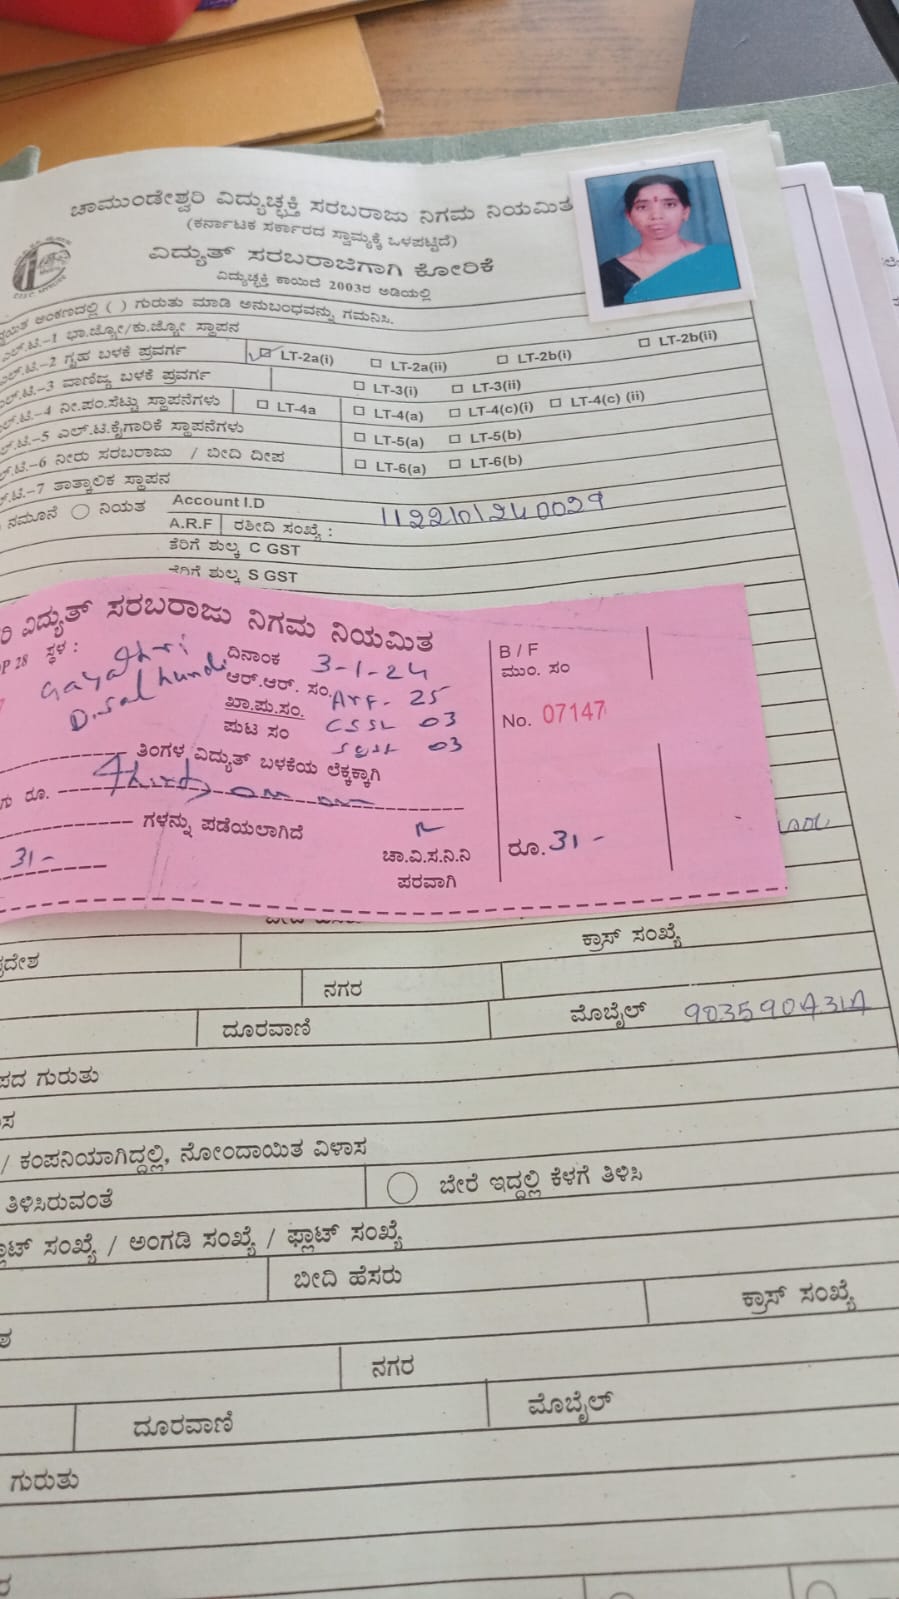 ಚಾಮುಂಡೇಶ್ವರಿ ವಿದ್ಯುಚ್ಛಕ್ತಿ ಸರಬರಾಜು ನಿಗಮ ನಿಯಮಿತ
(ಕರ್ನಾಟಕ ಸರ್ಕಾರದ ಸ್ವಾಮ್ಯಕ್ಕೆ ಒಳಪಟ್ಟಿದೆ)
ವಿದ್ಯುತ್ ಸರಬರಾಜಿಗಾಗಿ ಕೋರಿಕೆ
ವಿದ್ಯುಚ್ಛಕ್ತಿ ಕಾಯಿದೆ 2003ರ ಅಡಿಯಲ್ಲಿ
ಅಂಕಣದಲ್ಲಿ ( ) ಗುರುತು ಮಾಡಿ ಅನುಬಂಧವನ್ನು ಗಮನಿಸಿ.
ಎಲ್.ಟಿ.-1 ಭಾ.ಜ್ಯೋ/ಕು.ಜ್ಯೋ ಸ್ಥಾಪನ
ಎಲ್.ಟಿ.-2 ಗೃಹ ಬಳಕೆ ಪ್ರವರ್ಗ LT-2a(i) LT-2a(ii) LT-2b(i) LT-2b(ii)
-3 ವಾಣಿಜ್ಯ ಬಳಕೆ ಪ್ರವರ್ಗ LT-3(i) LT-3(ii)
-4 ನೀ.ಪಂ.ಸೆಟ್ಟು ಸ್ಥಾಪನೆಗಳು LT-4a LT-4(a) LT-4(c)(i) LT-4(c) (ii)
-5 ಎಲ್.ಟಿ.ಕೈಗಾರಿಕೆ ಸ್ಥಾಪನೆಗಳು LT-5(a) LT-5(b)
-6 ನೀರು ಸರಬರಾಜು / ಬೀದಿ ದೀಪ LT-6(a) LT-6(b)
-7 ತಾತ್ಕಾಲಿಕ ಸ್ಥಾಪನ
ನಮೂನೆ ನಿಯತ Account I.D 1122101240029
A.R.F ರಶೀದಿ ಸಂಖ್ಯೆ :
ತೆರಿಗೆ ಶುಲ್ಕ C GST
ತೆರಿಗೆ ಶುಲ್ಕ S GST
ವಿದ್ಯುತ್ ಸರಬರಾಜು ನಿಗಮ ನಿಯಮಿತ
ಸ್ಥಳ : Gayathri ದಿನಾಂಕ 3-1-24 B / F
ಆರ್.ಆರ್. ಸಂ. Arf- 25 ಮುಂ. ಸಂ
ಖಾ.ಪು.ಸಂ. 03 No. 07147
ಪುಟ ಸಂ 03
ತಿಂಗಳ ವಿದ್ಯುತ್ ಬಳಕೆಯ ಲೆಕ್ಕಕ್ಕಾಗಿ
ರೂ.
ಗಳನ್ನು ಪಡೆಯಲಾಗಿದೆ
31- ಚಾ.ವಿ.ಸ.ನಿ.ನಿ ರೂ. 31-
ಪರವಾಗಿ
ಕ್ರಾಸ್ ಸಂಖ್ಯೆ
ನಗರ
ದೂರವಾಣಿ ಮೊಬೈಲ್ 9035904314
ಗುರುತು
/ ಕಂಪನಿಯಾಗಿದ್ದಲ್ಲಿ, ನೋಂದಾಯಿತ ವಿಳಾಸ
ತಿಳಿಸಿರುವಂತೆ ಬೇರೆ ಇದ್ದಲ್ಲಿ ಕೆಳಗೆ ತಿಳಿಸಿ
ಸಂಖ್ಯೆ / ಅಂಗಡಿ ಸಂಖ್ಯೆ / ಫ್ಲಾಟ್ ಸಂಖ್ಯೆ
ಬೀದಿ ಹೆಸರು
ಕ್ರಾಸ್ ಸಂಖ್ಯೆ
ನಗರ
ದೂರವಾಣಿ ಮೊಬೈಲ್
ಗುರುತು